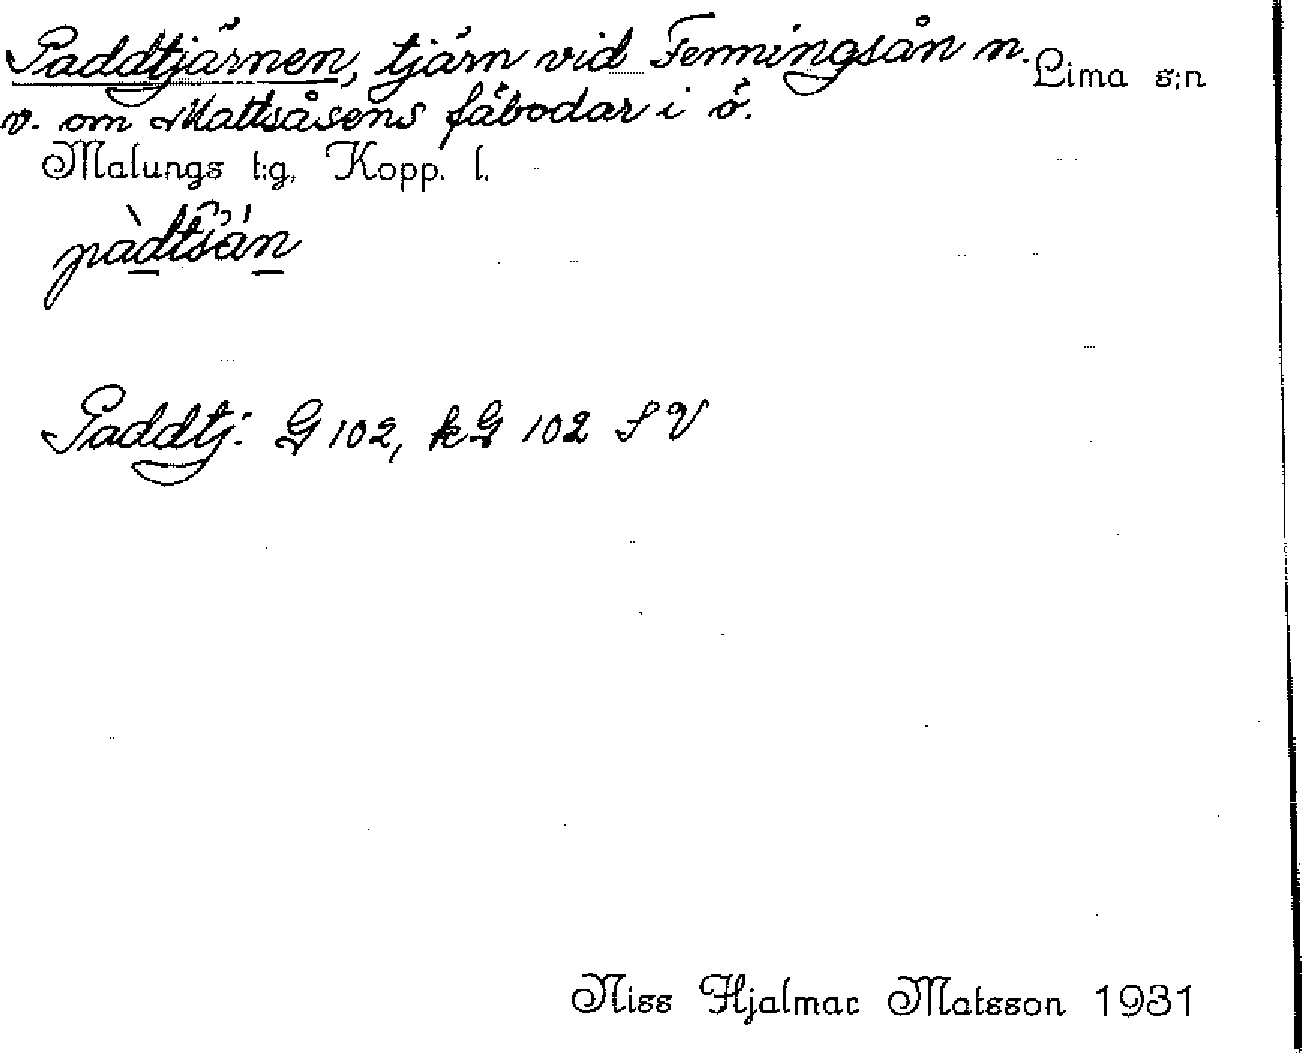 Paddtjärnen, tjärn vid Fenningsån n. Lima s:n
v. om Mattsåsens fäbodar i ö.
Malungs t:g, Kopp. l.
Paddtj. G 102, kG 102 SV
Niss Hjalmar Matsson 1931